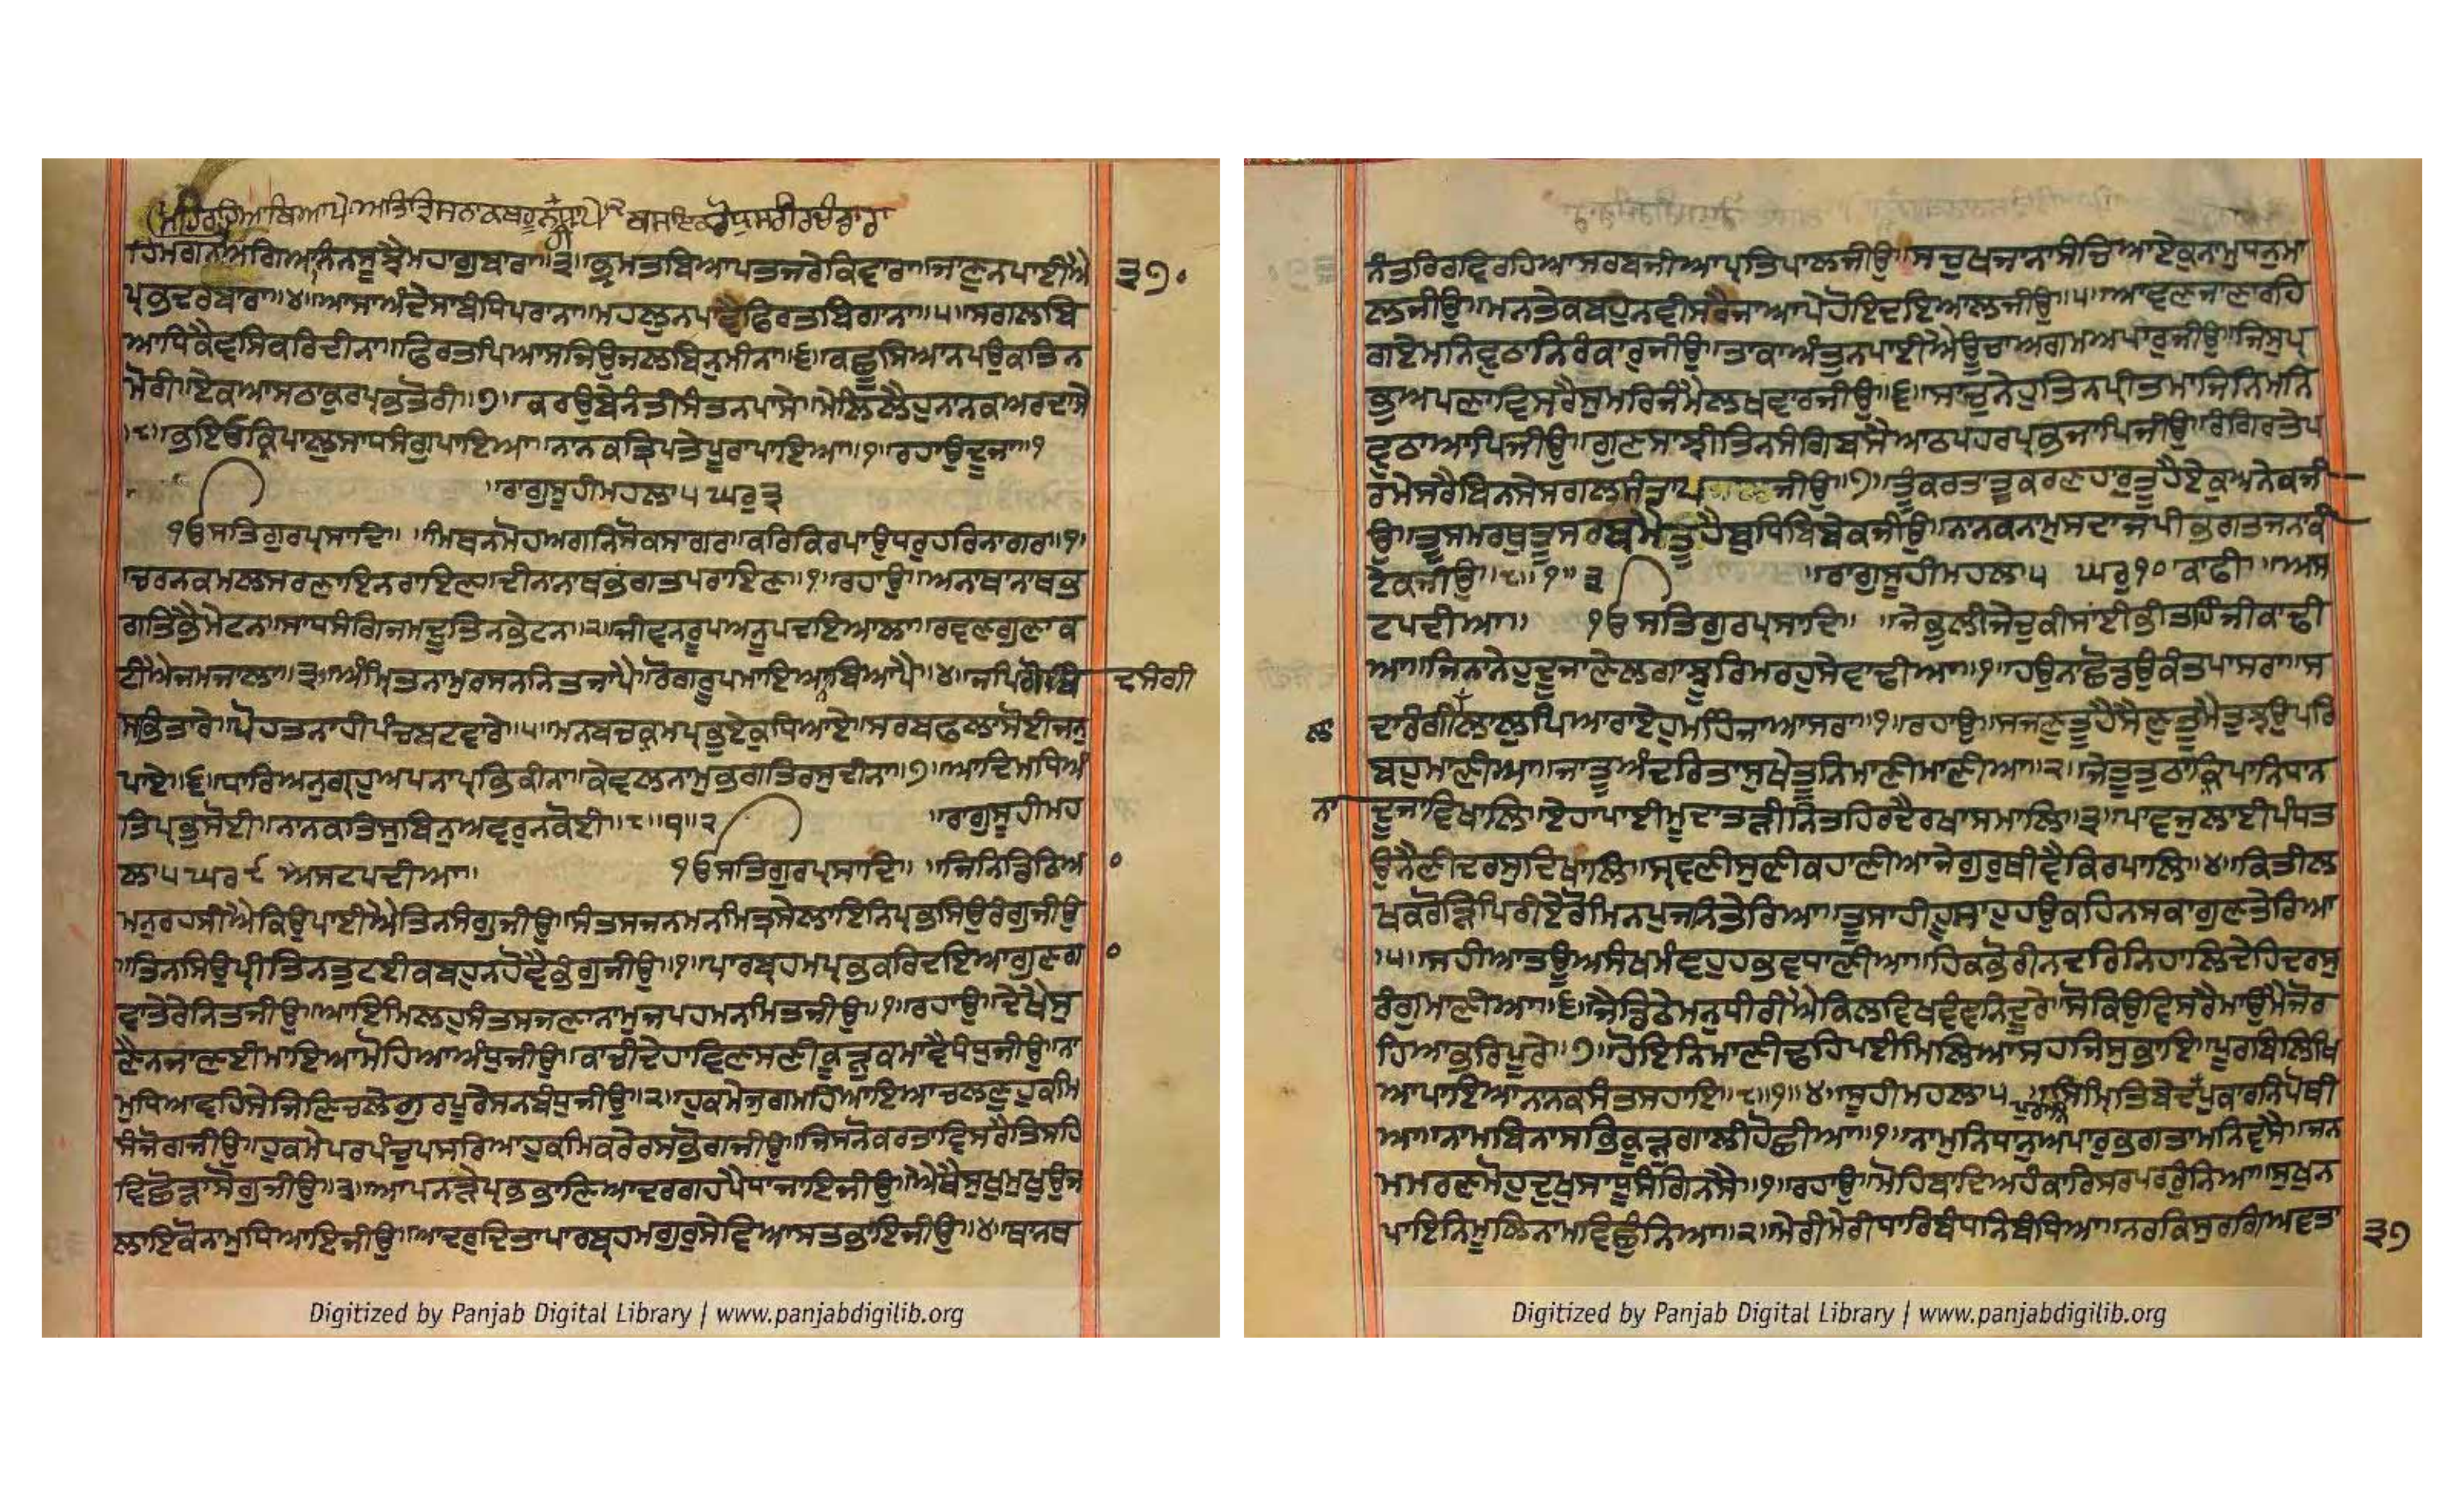 ਹਿਮਗਨੁਅਗਿਅਾਨਨਸੂਝੈਮਹਾਗੁਬਾਰਾ॥੩॥ਭ੍ਰਮਤਬਿਆਪਤਜਰੇਕਿਵਾਰਾ॥ਜਾਣੁਨਪਾਈਐ
ਪ੍ਰਭਦਰਬਾਰਾ॥੪॥ਆਸਾਅੰਦੇਸਾਬੰਧਿਪਰਾਨਾ॥ਮਹਲੁਨਪਾਵੈਫਿਰਤਬਿਗਾਨਾ॥੫॥ਸਗਲਬਿ
ਆਧਿਕੈਵਸਿਕਰਿਦੀਨਾ॥ਫਿਰਤਪਿਆਸਜਿਉਜਲਬਿਨੁਮੀਨਾ॥੬॥ਕਛੂਸਿਆਨਪਉਕਤਿਨ
ਮੋਰੀ॥ਏਕਆਸਠਾਕੁਰਪ੍ਰਭਤੋਰੀ॥੭॥ਕਰਉਬੇਨੰਤੀਸੰਤਨਪਾਸੇ॥ਮੇਲਿਲੈਹੁਨਾਨਕਅਰਦਾਸੇ
॥੮॥ਭਇਓਕ੍ਰਿਪਾਲੁਸਾਧਸੰਗੁਪਾਇਆ॥ਨਾਨਕਤ੍ਰਿਪਤੇਪੂਰਾਪਾਇਆ॥੧॥ਰਹਾਉਦੂਜਾ॥੧
॥ਰਾਗੁਸੂਹੀਮਹਲਾ੫ ਘਰੁ੩
੧ਓਸਤਿਗੁਰਪ੍ਰਸਾਦਿ॥ ॥ਮਿਥਨਮੋਹਅਗਨਿਸੋਕਸਾਗਰ॥ਕਰਿਕਿਰਪਾਉਧਰੁਹਰਿਨਾਗਰ॥੧॥
ਚਰਨਕਮਲਸਰਣਾਇਨਰਾਇਣ॥ਦੀਨਾਨਾਥਭਗਤਪਰਾਇਣ॥੧॥ਰਹਾਉ॥ਅਨਾਥਾਨਾਥਭ
ਗਤਿਭੈਮੇਟਨ॥ਸਾਧਸੰਗਿਜਮਦੂਤਨਭੇਟਨ॥੨॥ਜੀਵਨਰੂਪਅਨੂਪਦਇਆਲਾ॥ਰਵਣਗੁਣਾਕ
ਟੀਐਜਮਜਾਲਾ॥੩॥ਅੰਮ੍ਰਿਤਨਾਮੁਰਸਨਨਿਤਜਾਪੈ॥ਰੋਗਰੂਪਮਾਇਆਨਬਿਆਪੈ॥੪॥ਜਪਿਗੋਬਿੰ ਦਸੰਗੀ
ਸਭਿਤਾਰੇ॥ਪੋਹਤਨਾਹੀਪੰਚਬਟਵਾਰੇ॥੫॥ਮਨਬਚਕ੍ਰਮਪ੍ਰਭੁਏਕੁਧਿਆਏ॥ਸਰਬਫਲਾਸੋਈਜਨੁ
ਪਾਏ॥੬॥ਧਾਰਿਅਨੁਗ੍ਰਹੁਅਪਨਾਪ੍ਰਭਿਕੀਨਾ॥ਕੇਵਲਨਾਮੁਭਗਤਿਰਸੁਦੀਨਾ॥੭॥ਆਦਿਮਧਿਅੰ
ਤਿਪ੍ਰਭੁਸੋਈ॥ਨਾਨਕਤਿਸੁਬਿਨੁਅਵਰੁਨਕੋਈ॥੮॥੧॥੨ ॥ਰਾਗੁਸੂਹੀਮਹ
ਲਾ੫ਘਰ੯ ਅਸਟਪਦੀਆ॥ ੧ਓਸਤਿਗੁਰਪ੍ਰਸਾਦਿ॥ ॥ਜਿਨਿਡਿਠਿਅ
ਮਨੁਰਹਸੀਐਕਿਉਪਾਈਐਤਿਨਸੰਗੁਜੀਉ॥ਸੰਤਸਜਨਮਨਮਿਤ੍ਰਸੇਲਾਇਨਿਪ੍ਰਭਸਿਉਰੰਗੁਜੀਉ
॥ਤਿਨਸਿਉਪ੍ਰੀਤਿਨਤੁਟਈਕਬਹੁਨਹੋਵੈਭੰਗੁਜੀਉ॥੧॥ਪਾਰਬ੍ਰਹਮਪ੍ਰਭਕਰਿਦਇਆਗੁਣਗਾ
ਵਾਤੇਰੇਨਿਤਜੀਉ॥ਆਇਮਿਲਹੁਸੰਤਸਜਣਾਨਾਮੁਜਪਹਮਨਮਿਤਜੀਉ॥੧॥ਰਹਾਉ॥ਦੇਖੈਸੁ
ਣੈਨਜਾਣਈਮਾਇਆਮੋਹਿਆਅੰਧੁਜੀਉ॥ਕਾਚੀਦੇਹਾਵਿਣਸਣੀਕੂੜੁਕਮਾਵੈਧੰਧੁਜੀਉ॥ਨਾ
ਮੁਧਿਆਵਹਿਸੇਜਿਣਿਚਲੇਗੁਰਪੂਰੇਸਨਬੰਧੁਜੀਉ॥੨॥ਹੁਕਮੇਜੁਗਮਹਿਆਇਆਚਲਣੁਹੁਕਮਿ
ਸੰਜੋਗਜੀਉ॥ਹੁਕਮੇਪਰਪੰਚੁਪਸਰਿਆਹੁਕਮਿਕਰੇਰਸਭੋਗਜੀਉ॥ਜਿਸਨੋਕਰਤਾਵਿਸਰੈਤਿਸਹਿ
ਵਿਛੋੜਾਸੋਗੁਜੀਉ॥੩॥ਆਪਨੜੇਪ੍ਰਭਭਾਣਿਆਦਰਗਹਪੈਧਾਜਾਇਜੀਉ॥ਐਥੈਸੁਖੁਮੁਖੁਉਜ
ਲਾਇਕੋਨਾਮੁਧਿਆਇਜੀਉ॥ਆਦਰੁਦਿਤਾਪਾਰਬ੍ਰਹਮਗੁਰੁਸੇਵਿਆਸਤਭਾਇਜੀਉ॥੪॥ਥਾਨਥ
੩੭੦
Digitized by Panjab Digital Library | www.panjabdigilib.org
ਨੰਤਰਿਰਵਿਰਹਿਆਸਰਬਜੀਆਪ੍ਰਤਿਪਾਲਜੀਉ॥ਸਚੁਖਜਾਨਾਸੰਚਿਆਏਕੁਨਾਮੁਧਨੁਮਾ
ਲਜੀਉ॥ਮਨਤੇਕਬਹੁਨਵੀਸਰੈਜਾਆਪੇਹੋਇਦਇਆਲਜੀਉ॥੫॥ਆਵਣਜਾਣਾਰਹਿ
ਗਏਮਨਿਵੁਠਾਨਿਰੰਕਾਰੁਜੀਉ॥ਤਾਕਾਅੰਤੁਨਪਾਈਐਊਚਾਅਗਮਅਪਾਰੁਜੀਉ॥ਜਿਸੁਪ੍ਰ
ਭੁਅਪਣਾਵਿਸਰੈਸੁਮਰਿਜੰਮੈਲਖਵਾਰਜੀਉ॥੬॥ਸਾਚੁਨੇਹੁਤਿਨਪ੍ਰੀਤਮਾਜਿਨਿਮਨਿ
ਵੁਠਾਆਪਿਜੀਉ॥ਗੁਣਸਾਝੀਤਿਨਸੰਗਿਬਸੈਆਠਪਹਰਪ੍ਰਭਜਾਪਿਜੀਉ॥ਰੰਗਿਰਤੇਪ
ਰਮੇਸਰੈਬਿਨਸੇਸਗਲਸੰਤਾਪਜੀਉ॥੭॥ਤੂੰਕਰਤਾਤੂਕਰਣਹਾਰੁਤੂਹੈਏਕੁਅਨੇਕਜੀ
ਉ॥ਤੂਸਮਰਥੁਤੂਸਰਬਮੈਤੂਹੈਬੁਧਿਬਿਬੇਕਜੀਉ॥ਨਾਨਕਨਾਮੁਸਦਾਜਪੀਭਗਤਜਨਾਕੀ
ਟੇਕਜੀਉ॥੮॥੧॥੩ ॥ਰਾਗੁਸੂਹੀਮਹਲਾ੫ ਘਰੁ੧੦ਕਾਫੀ॥ਅਸ
ਟਪਦੀਆ॥ ੧ਓਸਤਿਗੁਰਪ੍ਰਸਾਦਿ॥ ॥ਜੇਭੁਲੀਜੇਚੁਕੀਸਾਈਭੀਤਹਿੰਜੀਕਾਢੀ
ਆ॥ਜਿਨਾਨੇਹੁਦੂਜਾਣੇਲਗਾਝੂਰਿਮਰਹੁਸੇਵਾਢੀਆ॥੧॥ਹਉਨਾਛੋਡਉਕੰਤਪਾਸਰਾ॥ਸ
ਦਾਰੰਗੀਲਾਲਾਲੁਪਿਆਰਾਏਹੁਮਹਿੰਜਾਆਸਰਾ॥੧॥ਰਹਾਉ॥ਸਜਣੁਤੂਹੈਸੈਣੁਤੂਮੈਤੁਝਉਪਰਿ
ਬਹੁਮਾਣੀਆ॥ਜਾਤੂਅੰਦਰਿਤਾਸੁਖੇਤੂਨਿਮਾਣੀਮਾਣੀਆ॥੨॥ਜੇਤੂਤੁਠਾਕ੍ਰਿਪਾਨਿਧਾਨ
ਨਾ ਦੂਜਾਵਿਖਾਲਿ॥ਏਹਾਪਾਈਮੂਦਾਤੜੀਨਿਤਹਿਰਦੈਰਖਾਸਮਾਲਿ॥੩॥ਪਾਵਜੁਲਾਈਪੰਧਤ
ਉਨੈਣੀਦਰਸੁਦਿਖਾਲਿ॥ਸ੍ਰਵਣੀਸੁਣੀਕਹਾਣੀਆਜੇਗੁਰੁਥੀਵੈਕਿਰਪਾਲਿ॥੪॥ਕਿਤੀਲ
ਖਕਰੋੜਿਪਿਰੀਏਰੋਮਿਨਪੁਜਨਿਤੇਰਿਆ॥ਤੂਸਾਹੀਹੂਸਾਹੁਹਉਕਹਿਨਸਕਾਗੁਣਤੇਰਿਆ
॥੫॥ਸਹੀਆਤਊਅਸੰਖਮੰਞਹੁਹਭਵਧਾਣੀਆ॥ਹਿਕਭੋਰੀਨਦਰਿਨਿਹਾਲਿਦੇਹਿਦਰਸੁ
ਰੰਗੁਮਾਣੀਆ॥੬॥ਜੈਡਿਠੇਮਨੁਧੀਰੀਐਕਿਲਵਿਖਵੰਞਨਿਦੂਰੇ॥ਸੋਕਿਉਵਿਸਰੈਮਾਉਮੈਜੋਰ
ਹਿਆਭਰਿਪੂਰੇ॥੭॥ਹੋਇਨਿਮਾਣੀਢਹਿਪਈਮਿਲਿਆਸਹਜਿਸੁਭਾਇ॥ਪੂਰਬਿਲਿਖਿ
ਆਪਾਇਆਨਾਨਕਸੰਤਸਹਾਇ॥੮॥੧॥੪॥ਸੂਹੀਮਹਲਾ੫॥ਸਿਮ੍ਰਿਤਿਬੇਦਪੁਰਾਣਪੁਕਾਰਨਿਪੋਥੀ
ਆ॥ਨਾਮਬਿਨਾਸਭਿਕੂੜੁਗਾਲੀਹੋਛੀਆ॥੧॥ਨਾਮੁਨਿਧਾਨੁਅਪਾਰੁਭਗਤਾਮਨਿਵਸੈ॥ਜਨ
ਮਮਰਣਮੋਹੁਦੁਖੁਸਾਧੂਸੰਗਿਨਸੈ॥੧॥ਰਹਾਉ॥ਮੋਹਿਬਾਦਿਅਹੰਕਾਰਿਸਰਪਰਰੁੰਨਿਆ॥ਸੁਖੁਨ
ਪਾਇਨਿਮੂਲਿਨਾਮਵਿਛੁੰਨਿਆ॥੨॥ਮੇਰੀਮੇਰੀਧਾਰਿਬੰਧਨਿਬੰਧਿਆ॥ਨਰਕਿਸੁਰਗਿਅਵਤਾ
੩੭
Digitized by Panjab Digital Library | www.panjabdigilib.org